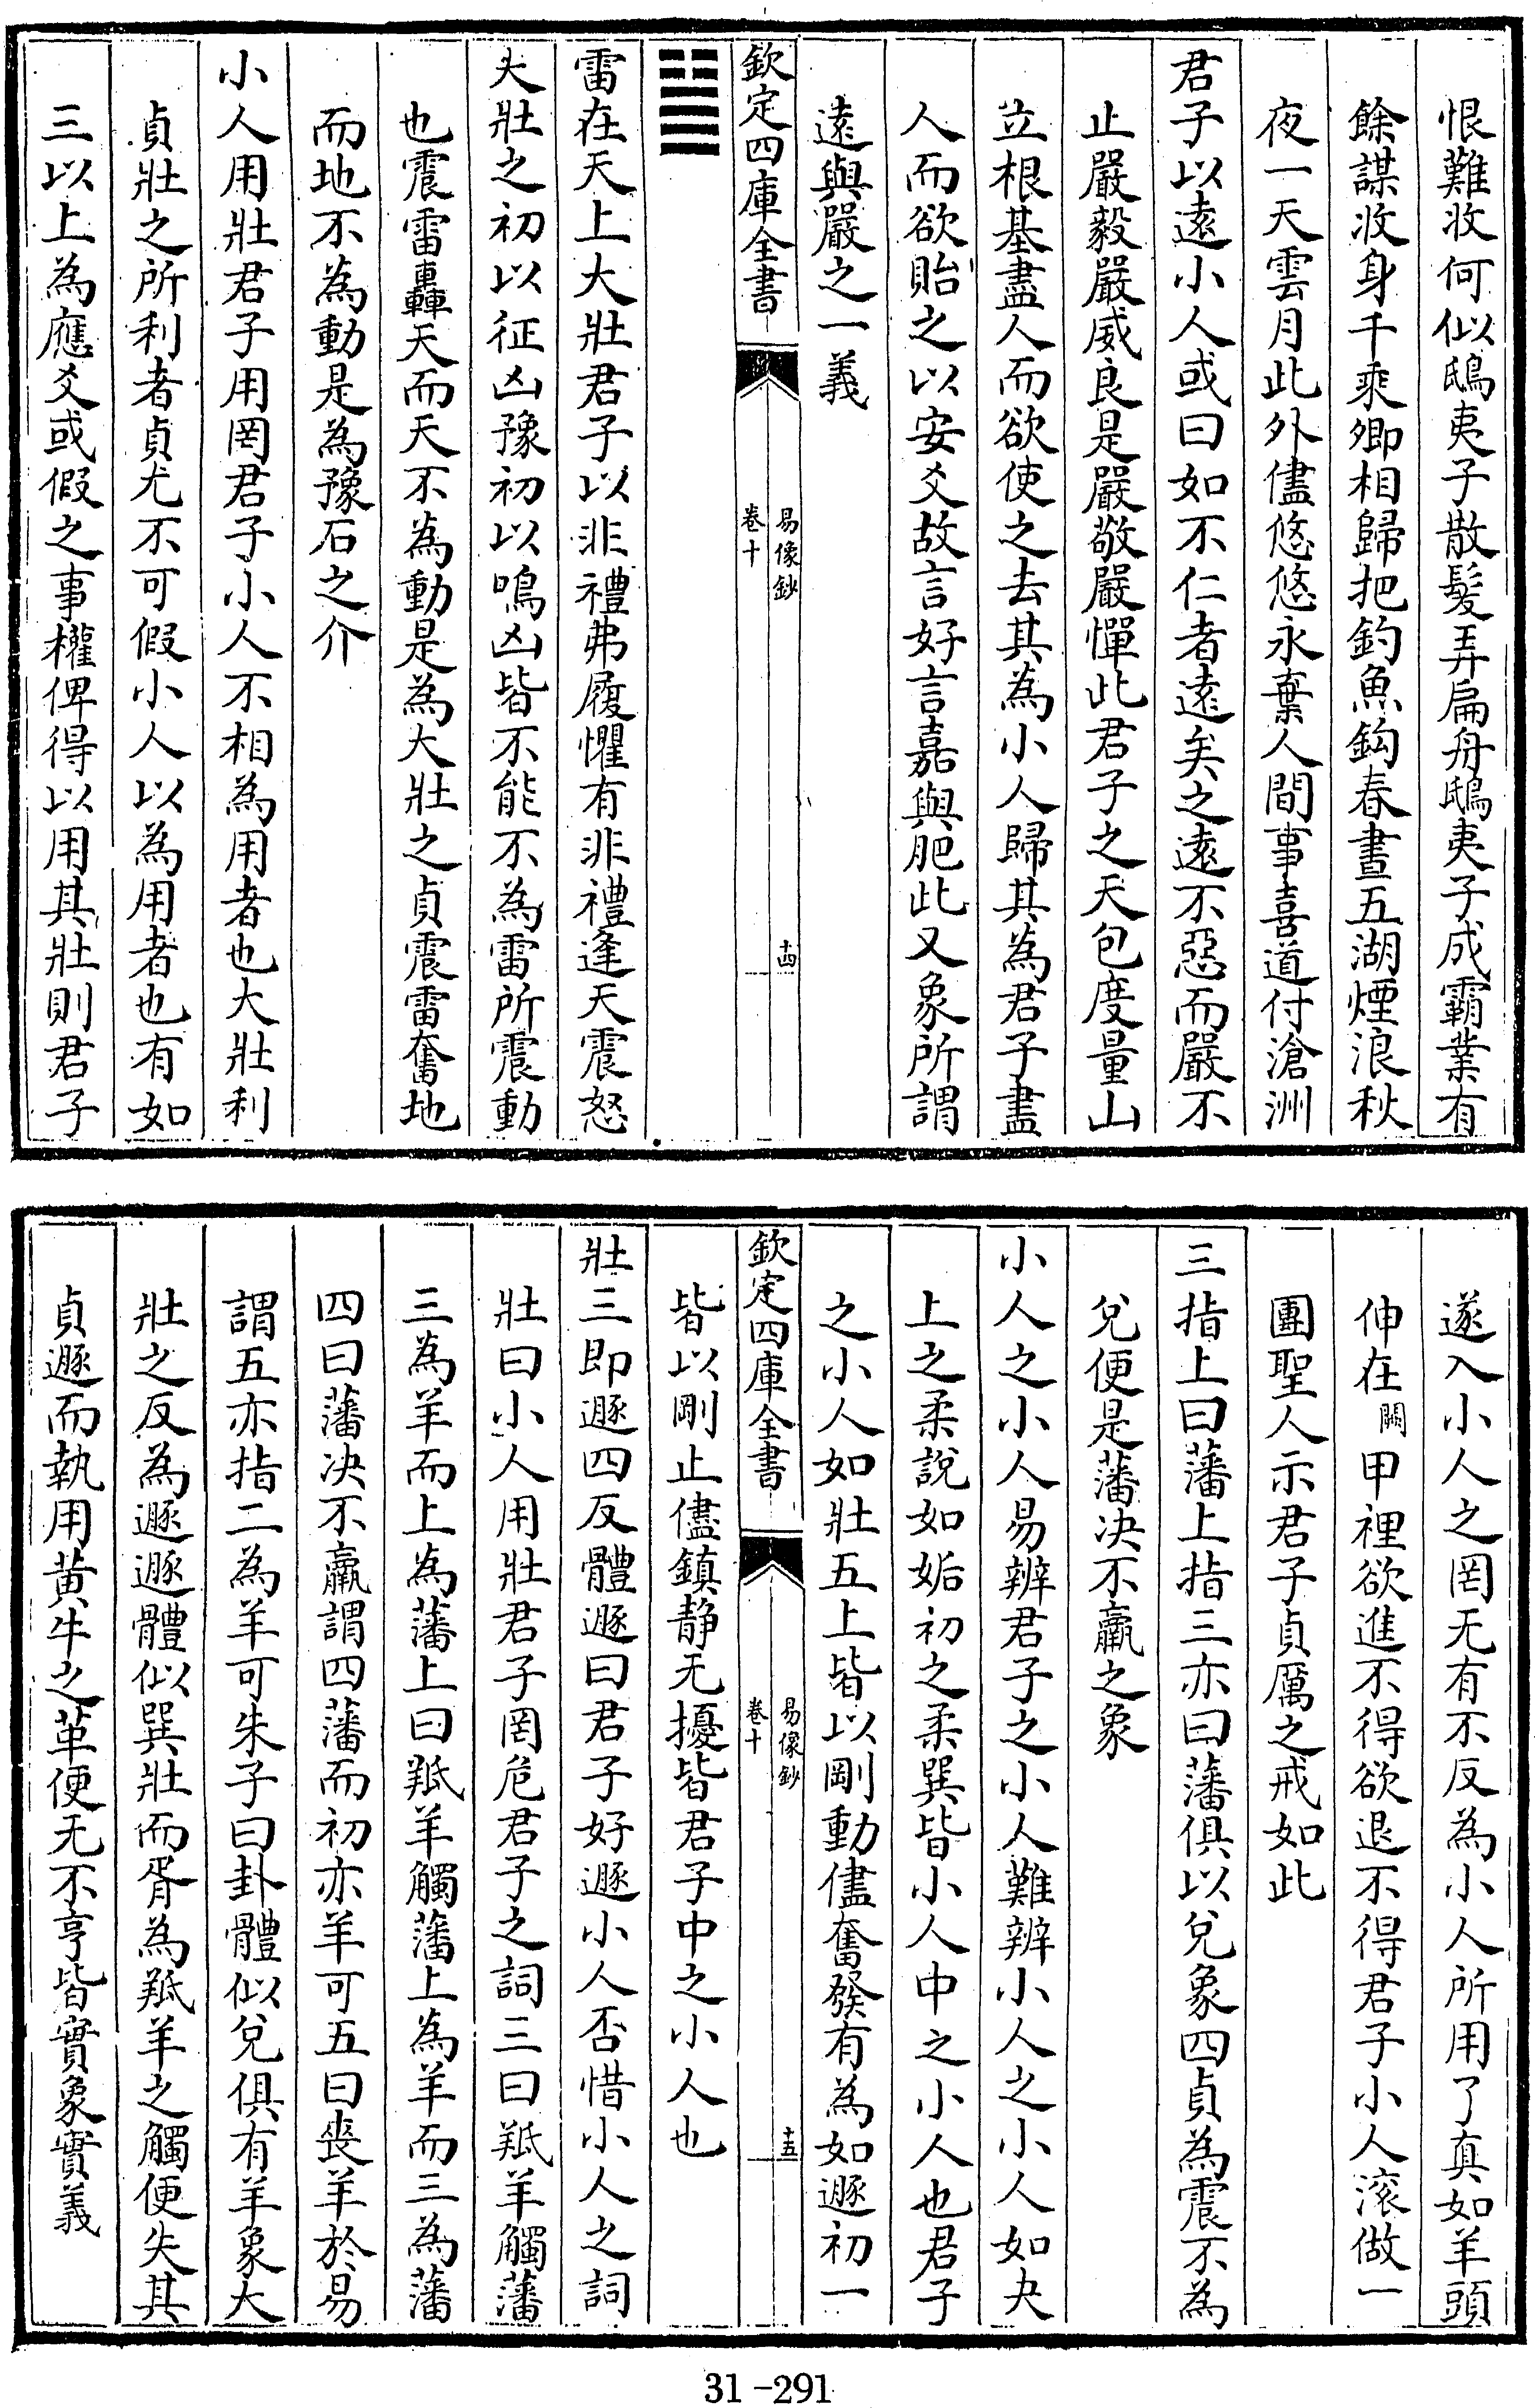 恨難收何似鴟夷子散髮弄扁舟鴟夷子成霸業有
餘謀收身千乘卿相歸把釣魚鈎春晝五湖煙浪秋
夜一天雲月此外儘悠悠永棄人間事喜道付滄洲
君子以遠小人或曰如不仁者遠矣之遠不惡而嚴不
止嚴毅嚴威良是嚴敬嚴憚此君子之天包度量山
立根基盡人而欲使之去其為小人歸其為君子盡
人而欲貽之以安爻故言好言嘉與肥此又象所謂
遠與嚴之一義
欽定四庫全書
易像鈔
卷十
十四
䷡
雷在天上大壯君子以非禮弗履懼有非禮逢天震怒
大壯之初以征凶豫初以鳴凶皆不能不為雷所震動
也震雷轟天而天不為動是為大壯之貞震雷奮地
而地不為動是為豫石之介
小人用壯君子用罔君子小人不相為用者也大壯利
貞壯之所利者貞尤不可假小人以為用者也有如
三以上為應爻或假之事權俾得以用其壯則君子
遂入小人之罔无有不反為小人所用了真如羊頭
伸在闗甲裡欲進不得欲退不得君子小人滚做一
團聖人示君子貞厲之戒如此
三指上曰藩上指三亦曰藩俱以兌象四貞為震不為
兌便是藩决不羸之象
小人之小人易辨君子之小人難辨小人之小人如夬
上之柔說如姤初之柔巽皆小人中之小人也君子
之小人如壯五上皆以剛動儘奮發有為如遯初一
欽定四庫全書
易像鈔
卷十
十五
皆以剛止儘鎮静无擾皆君子中之小人也
壯三即遯四反體遯曰君子好遯小人否惜小人之詞
壯曰小人用壯君子罔危君子之詞三曰羝羊觸藩
三為羊而上為藩上曰羝羊觸藩上為羊而三為藩
四曰藩决不羸謂四藩而初亦羊可五曰喪羊於易
謂五亦指二為羊可朱子曰卦體似兌俱有羊象大
壯之反為遯遯體似巽壯而胥為羝羊之觸便失其
貞遯而執用黄牛之革便无不亨皆實象實義
31-291